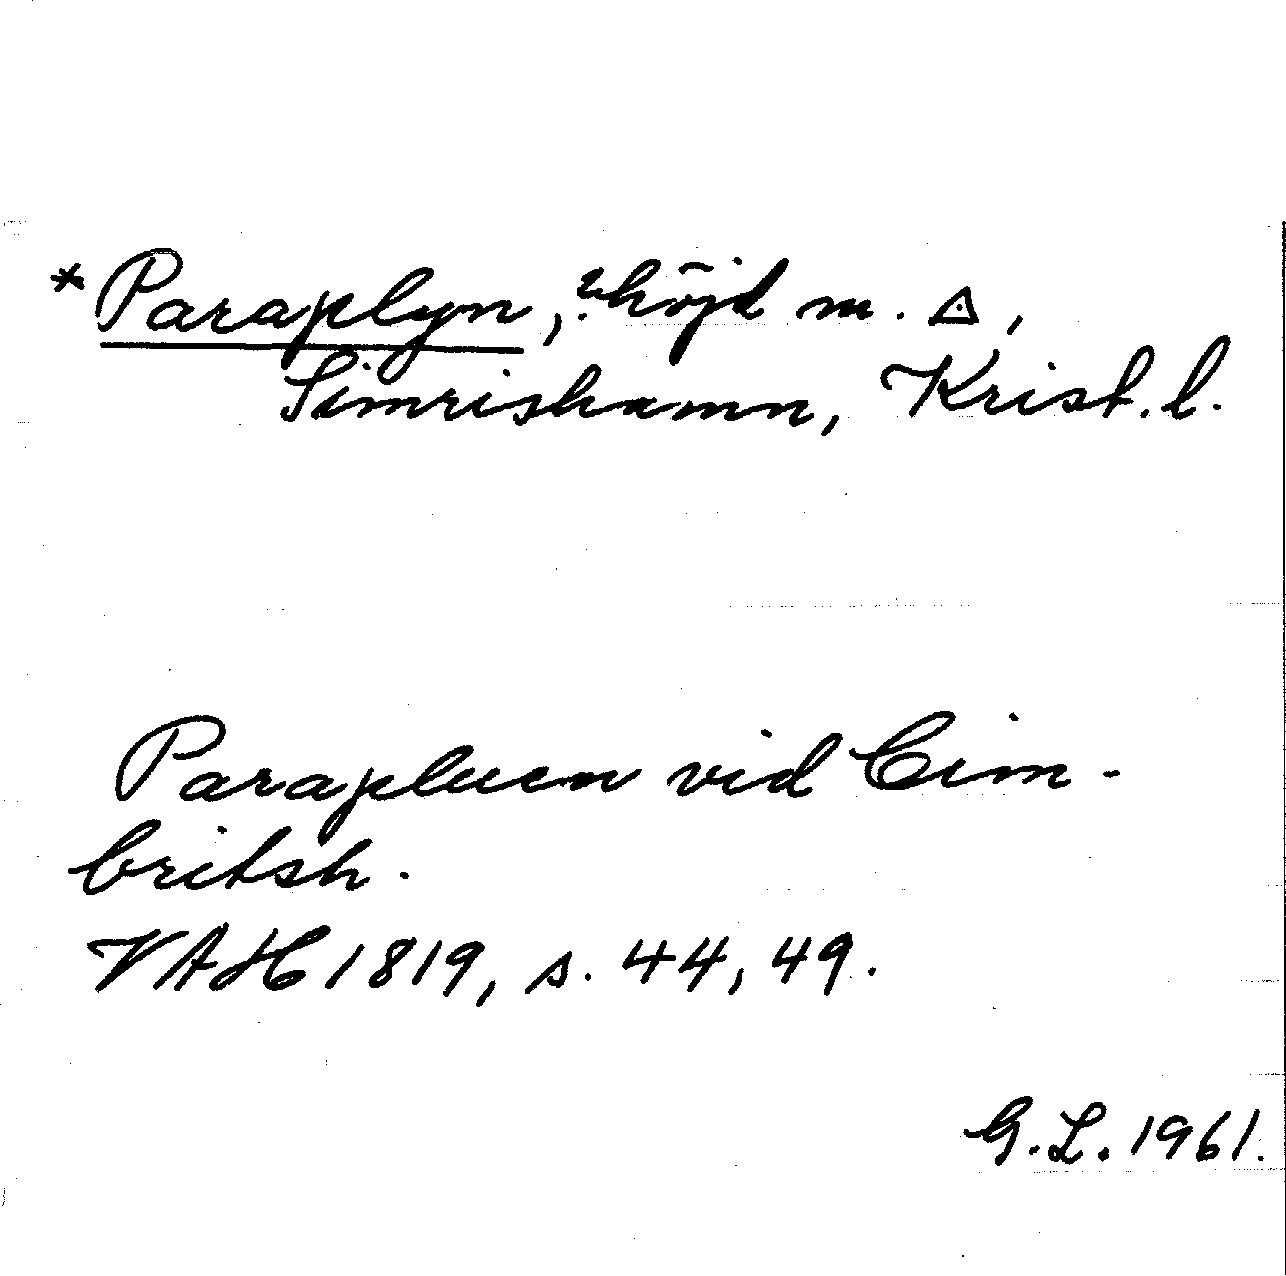 *Paraplyn, ?höjd m. ◬,
Simrishamn, Krist. l.
Parapluen vid Cim-
britsh.
VAH 1819, s. 44, 49.
G.L. 1961.